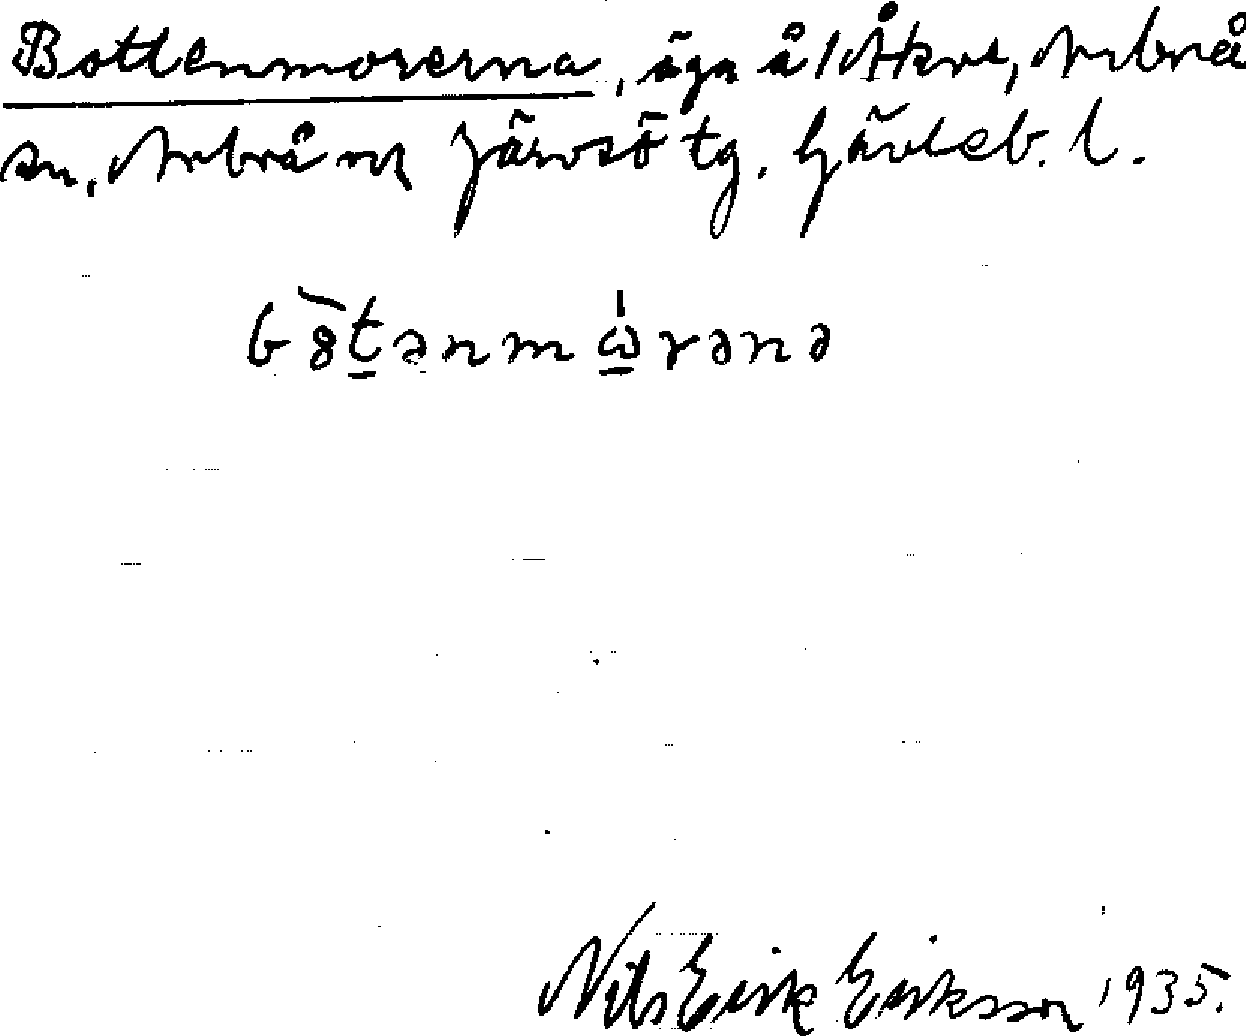 Bottenmorerna, äga å 1 Åkre, Arbrå
sn, Arbrå och Järvsö tg. Gävleb. l.
bòtənmωrənə
Nils Erik Eriksson 1935.